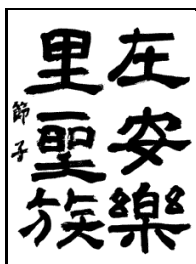 在安樂
里聖族
節子